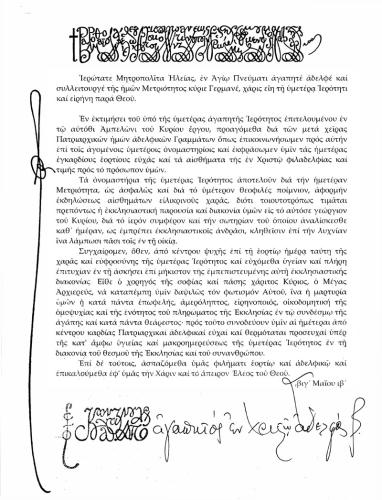 Ἱερώτατε Μητροπολῖτα Ἠλείας, ἐν Ἁγίῳ Πνεύματι ἀγαπητὲ ἀδελφὲ καὶ
συλλειτουργὲ τῆς ἡμῶν Μετριότητος κύριε Γερμανέ, χάρις εἴη τῇ ὑμετέρᾳ Ἱερότητι
καὶ εἰρήνη παρὰ Θεοῦ.
Ἐν ἐκτιμήσει τοῦ ὑπὸ τῆς ὑμετέρας ἀγαπητῆς Ἱερότητος ἐπιτελουμένου ἐν
τῷ αὐτόθι Ἀμπελῶνι τοῦ Κυρίου ἔργου, προαγόμεθα διὰ τῶν μετὰ χεῖρας
Πατριαρχικῶν ἡμῶν ἀδελφικῶν Γραμμάτων ὅπως ἐπικοινωνήσωμεν πρὸς αὐτὴν
ἐπὶ τοῖς ἀγομένοις ὑμετέροις ὀνομαστηρίοις καὶ ἐκφράσωμεν ὑμῖν τὰς ἡμετέρας
ἐγκαρδίους ἑορτίους εὐχὰς καὶ τὰ αἰσθήματα τῆς ἐν Χριστῷ φιλαδελφίας καὶ
τιμῆς πρὸς τὸ πρόσωπον ὑμῶν.
Τὰ ὀνομαστήρια τῆς ὑμετέρας Ἱερότητος ἀποτελοῦν διὰ τὴν ἡμετέραν
Μετριότητα, ὡς ἀσφαλῶς καὶ διὰ τὸ ὑμέτερον θεοφιλὲς ποίμνιον, ἀφορμὴν
ἐκδηλώσεως αἰσθημάτων εἰλικρινοῦς χαρᾶς, διότι τοιουτοτρόπως τιμᾶται
πρεπόντως ἡ ἐκκλησιαστικὴ παρουσία καὶ διακονία ὑμῶν εἰς τὸ αὐτόσε γεώργιον
τοῦ Κυρίου, διὰ τὸ ἱερὸν συμφέρον καὶ τὴν σωτηρίαν τοῦ ὁποίου ἀναλίσκεσθε
καθ᾽ ἡμέραν, ὡς ἐμπρέπει ἐκκλησιαστικοῖς ἀνδράσι, κληθεῖσιν ἐπὶ τὴν λυχνίαν
ἵνα λάμπωσι πᾶσι τοῖς ἐν τῇ οἰκίᾳ.
Συγχαίρομεν, ὅθεν, ἀπὸ κέντρου ψυχῆς ἐπὶ τῇ ἑορτίῳ ἡμέρᾳ ταύτῃ τῆς
χαρᾶς καὶ εὐφροσύνης τῆς ὑμετέρας Ἱερότητος καὶ εὐχόμεθα ὑγείαν καὶ πλήρη
ἐπιτυχίαν ἐν τῇ ἀσκήσει ἐπὶ μήκιστον τῆς ἐμπεπιστευμένης αὐτῇ ἐκκλησιαστικῆς
διακονίας. Εἴθε ὁ χορηγὸς τῆς σοφίας καὶ πάσης χάριτος Κύριος, ὁ Μέγας
Ἀρχιερεύς, νὰ καταπέμπῃ ὑμῖν δαψιλῶς τὸν φωτισμὸν Αὐτοῦ, ἵνα ἡ μαρτυρία
ὑμῶν ᾖ κατὰ πάντα ἐπωφελής, ἀμερόληπτος, εἰρηνοποιός, οἰκοδομητικὴ τῆς
ὁμοψυχίας καὶ τῆς ἑνότητος τοῦ πληρώματος τῆς Ἐκκλησίας ἐν τῷ συνδέσμῳ τῆς
ἀγάπης καὶ κατὰ πάντα Θεάρεστος· πρὸς τοῦτο συνοδεύουν ὑμῖν αἱ ἡμέτεραι ἀπὸ
κέντρου καρδίας Πατριαρχικαὶ ἀδελφικαὶ εὐχαὶ καὶ θερμόταται προσευχαὶ ὑπὲρ
τῆς κατ᾽ ἄμφω ὑγιείας καὶ μακροημερεύσεως τῆς ὑμετέρας Ἱερότητος ἐν τῇ
διακονίᾳ τοῦ θεσμοῦ τῆς Ἐκκλησίας καὶ τοῦ συνανθρώπου.
Ἐπὶ δὲ τούτοις, ἀσπαζόμεθα ὑμᾶς φιλήματι ἑορτίῳ καὶ ἀδελφικῷ καὶ
ἐπικαλούμεθα ἐφ᾽ ὑμᾶς τὴν Χάριν καὶ τὸ ἄπειρον Ἔλεος τοῦ Θεοῦ.
͵βιγ´ Μαΐου ιβ´
ἀγαπητὸς ἐν Χριστῷ ἀδελφός